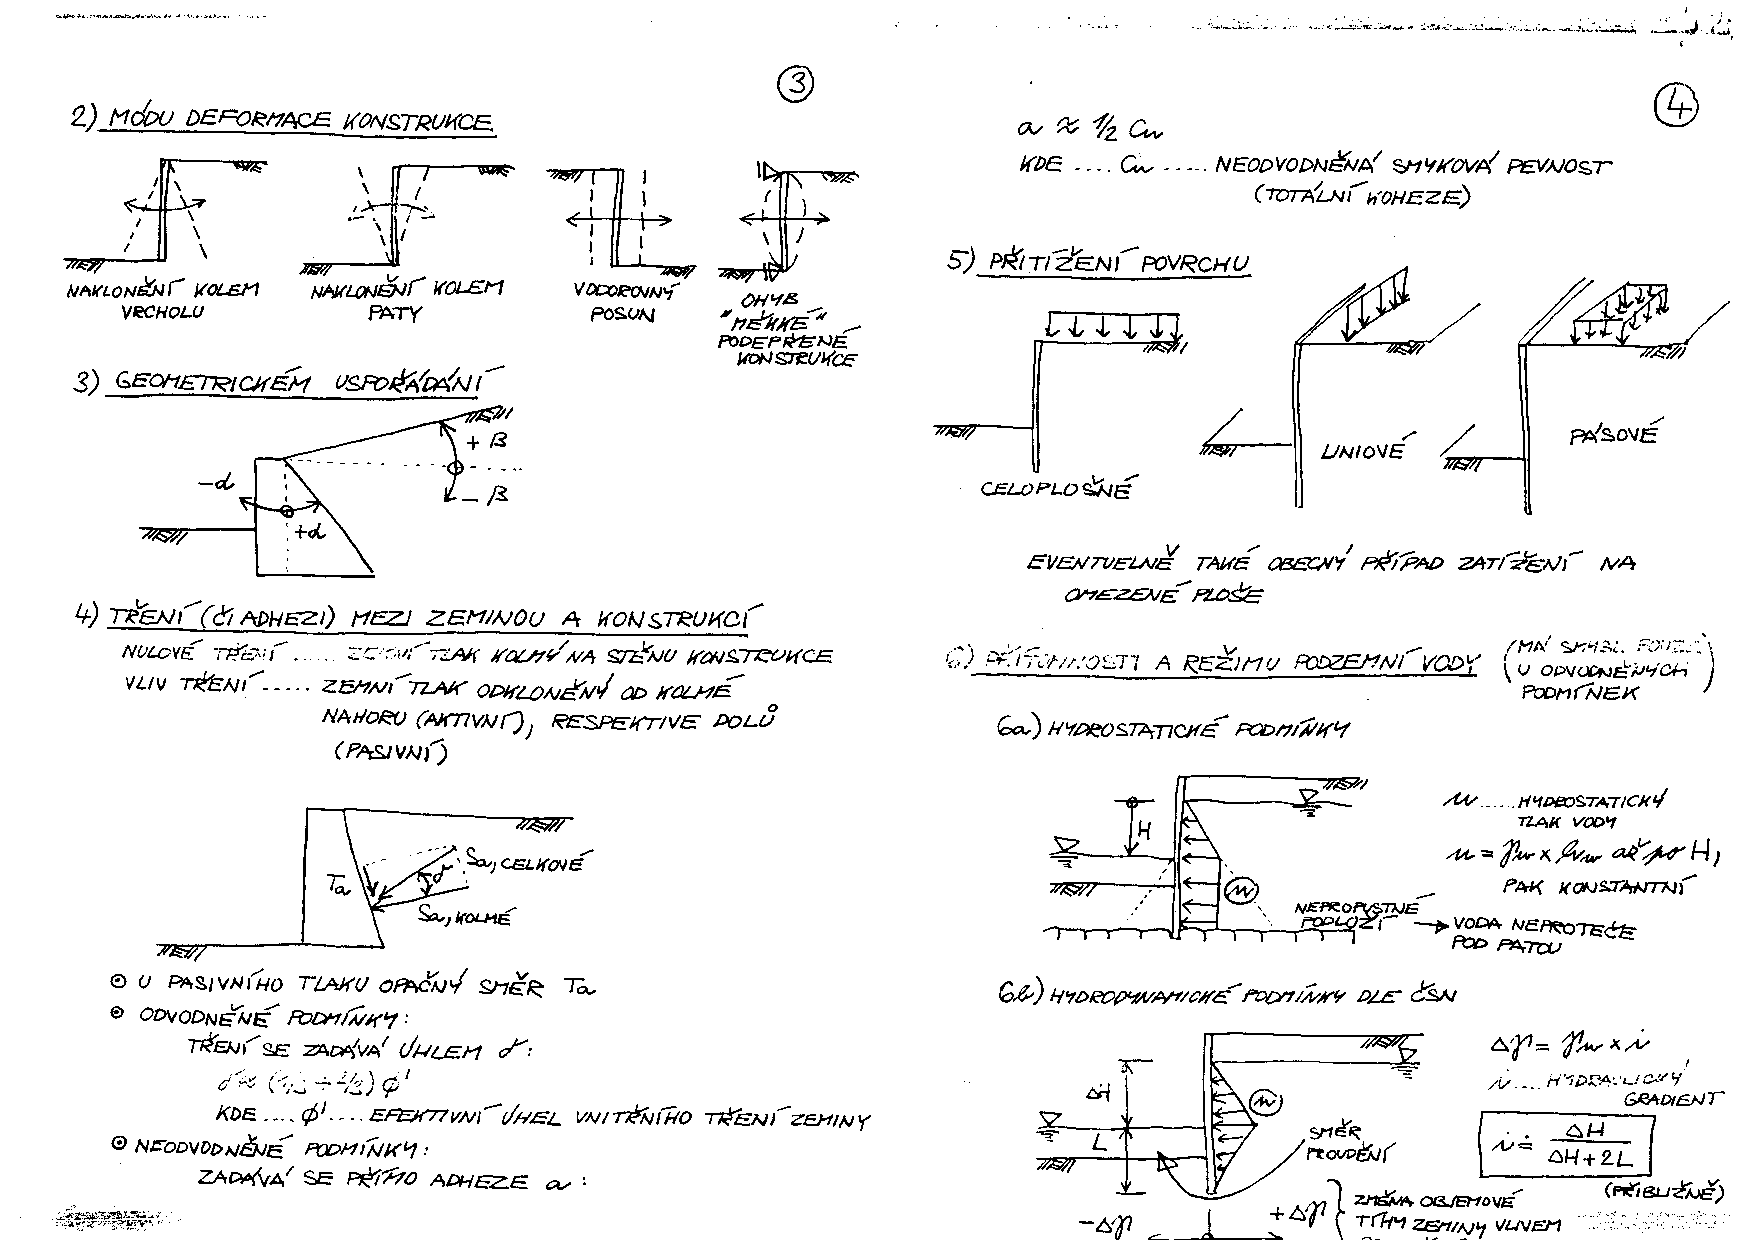 3
2) MÓDU DEFORMACE KONSTRUKCE
NAKLONĚNÍ KOLEM
VRCHOLU
NAKLONĚNÍ KOLEM
PATY
VODOROVNÝ
POSUN
OHYB
"MĚKKÉ"
PODEPŘENÉ
KONSTRUKCE
3) GEOMETRICKÉM USPOŘÁDÁNÍ
+ β
- β
-α
+α
4) TŘENÍ (ČI ADHEZI) MEZI ZEMINOU A KONSTRUKCÍ
NULOVÉ TŘENÍ ..... ZEMNÍ TLAK KOLMÝ NA STĚNU KONSTRUKCE
VLIV TŘENÍ ..... ZEMNÍ TLAK ODKLONĚNÝ OD KOLMÉ
NAHORU (AKTIVNÍ), RESPEKTIVE DOLŮ
(PASIVNÍ)
Ta
Sa, CELKOVÉ
δ
Sa, KOLMÉ
⊙ U PASIVNÍHO TLAKU OPAČNÝ SMĚR Ta
⊙ ODVODNĚNÉ PODMÍNKY:
TŘENÍ SE ZADÁVÁ ÚHLEM δ:
δ ≈ (1/3 ÷ 2/3) φ'
KDE .... φ' .... EFEKTIVNÍ ÚHEL VNITŘNÍHO TŘENÍ ZEMINY
⊙ NEODVODNĚNÉ PODMÍNKY:
ZADÁVÁ SE PŘÍMO ADHEZE a:
4
a ≈ 1/2 Cu
KDE .... Cu ..... NEODVODNĚNÁ SMYKOVÁ PEVNOST
(TOTÁLNÍ KOHEZE)
5) PŘITÍŽENÍ POVRCHU
CELOPLOŠNÉ
LINIOVÉ
PÁSOVÉ
EVENTUELNĚ TAKÉ OBECNÝ PŘÍPAD ZATÍŽENÍ NA
OMEZENÉ PLOŠE
6) PŘÍTOMNOSTI A REŽIMU PODZEMNÍ VODY
(MÁ SMYSL POUZE
U ODVODNĚNÝCH
PODMÍNEK)
6a) HYDROSTATICKÉ PODMÍNKY
H
u
u ..... HYDROSTATICKÝ
TLAK VODY
u = γw x hw až po H,
PAK KONSTANTNÍ
NEPROPUSTNÉ
PODLOŽÍ
→ VODA NEPROTEČE
POD PATOU
6b) HYDRODYNAMICKÉ PODMÍNKY DLE ČSN
ΔH
L
u
SMĚR
PROUDĚNÍ
Δγ = γw x i
i .... HYDRAULICKÝ
GRADIENT
i ≐ ΔH / ΔH+2L
(PŘIBLIŽNĚ)
-Δγ
+Δγ
ZMĚNA OBJEMOVÉ
TÍHY ZEMINY VLIVEM